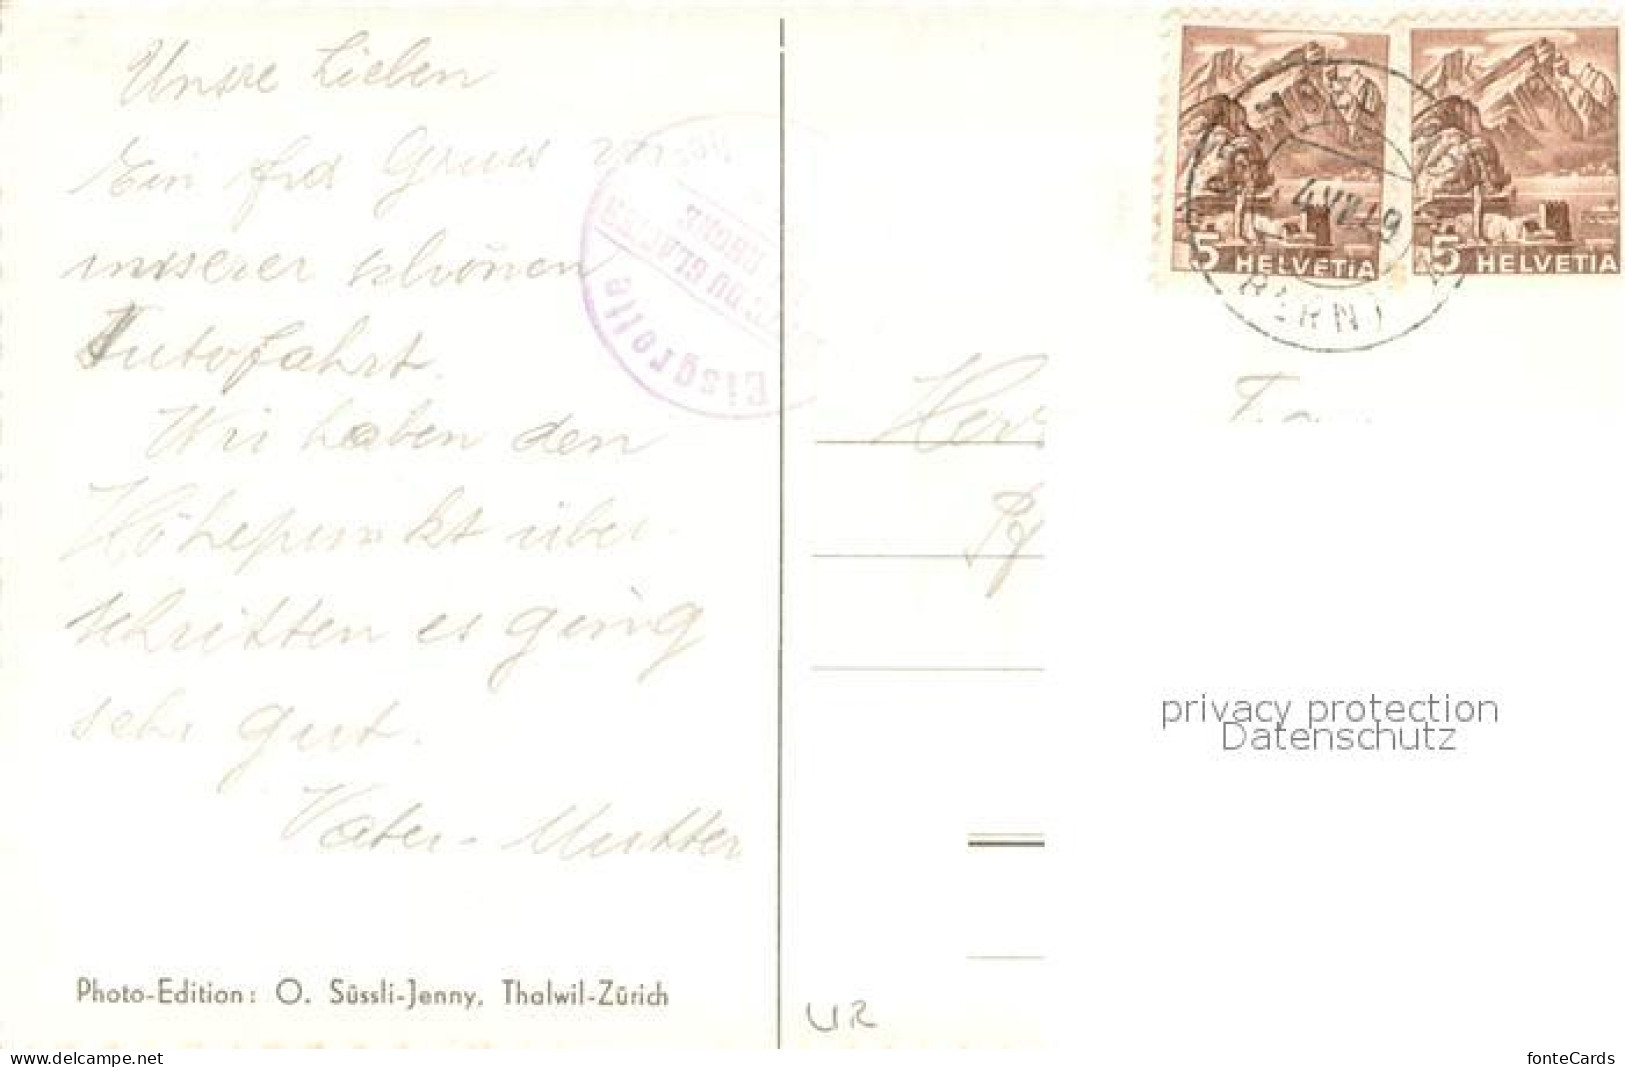 Unsre Lieben
Ein frd Gruss von
unserer schönen
Autofahrt.
Wir haben den
Höhepunkt über
schritten es ging
sehr gut.
Vater - Mutter
Photo-Edition: O. Süssli-Jenny, Thalwil-Zürich
Eisgrotte
DU GLACIER
RHONE
5 HELVETIA
5 HELVETIA
4.VII.49
(BERN)
Herr Fam
UR
privacy protection
Datenschutz
www.delcampe.net
fonteCards